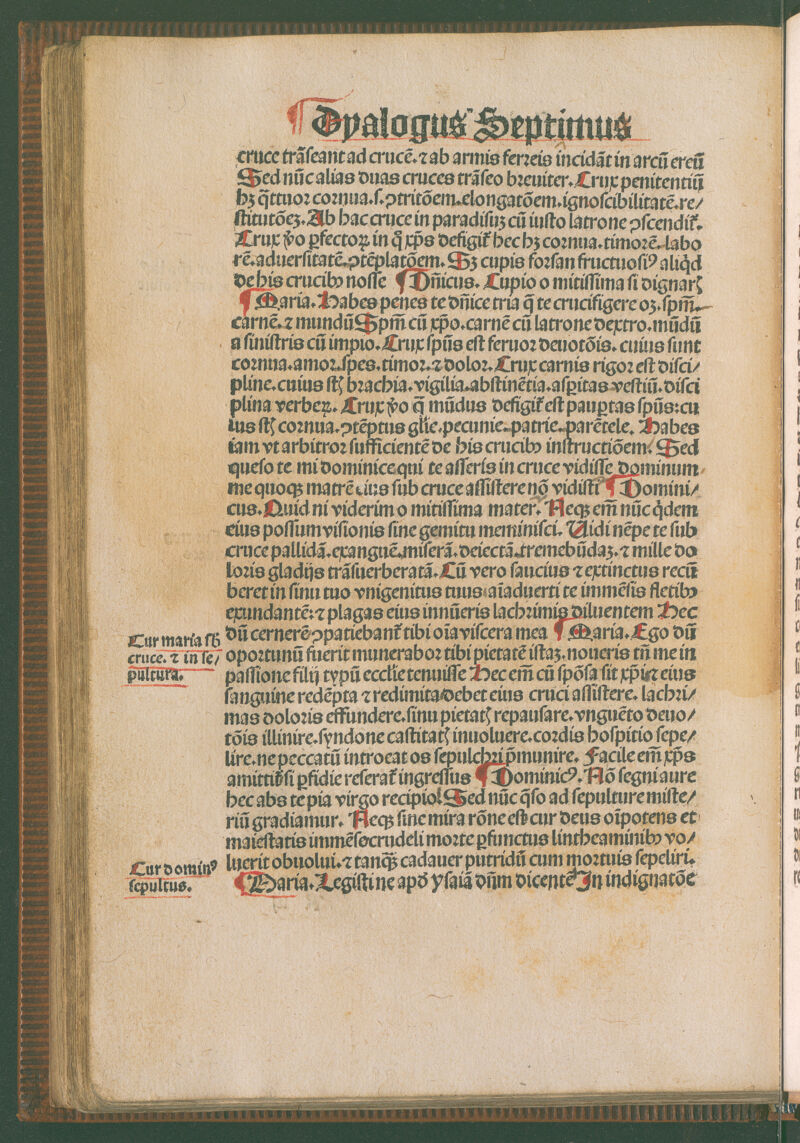 ¶ Dyalogus Septimus
cruce trãseant ad crucē. ⁊ ab armis ferreis incidãt in arcũ ereũ
Sed nũc alias duas cruces trãseo breuiter. Crux penitentiũ
hꝫ q̃ttuor cornua. s. ꝯtritõem. elongatõem. ignoscibilitatē. re/
stitutõeꝫ. Ab hac cruce in paradisuꝫ cũ iusto latrone ꝯscendit᷑.
Crux ṽo ꝑfectoꝝ in q̃ xp̃s defigit᷑ hec hꝫ cornua. timorē. labo
rē. aduersitatē. ꝯtẽplatõem. Sꝫ cupis forsan fructuosiꝰ aliq̇d
de his crucibꝰ nosse ¶ Dñicus. Cupio o mitissima si dignarꝭ
¶ Maria. Habes penes te dñice tria q̃ te crucifigere oꝫ. spm̃.
carnē. ⁊ mundũ Spm̃ cũ xp̃o. carnē cũ latrone dextro. mũdũ
a sinistris cũ impio. Crux spũs est feruor deuotõis. cuius sunt
cornua. amor. spes. timor. ⁊ dolor. Crux carnis rigor est disci/
pline. cuius st̃ brachia. vigilia. abstinẽtia. asp̱itas vestiũ. disci
plina verbeꝝ. Crux ṽo q̃ mũdus defigit᷑ est pauꝑtas spũs: cu
ius st̃ cornua. ꝯtẽptus gl̃ie. pecunie. patrie. parẽtele. Habes
iam vt arbitror sufficientē de his crucibꝰ instructõem. Sed
queso te mi dominice qui te asseris in cruce vidisse dominum
me quoqꝫ matrē eius sub cruce assistere nõ vidisti ¶ Domini/
cus. Quid ni viderim o mitissima mater. Neqꝫ em̃ nũc q̇dem
eius possum visionis sine gemitu meminisci. Uidi nẽpe te sub
cruce pallidã. exanguē. miserã. deiectã. tremebũdaꝫ. ⁊ mille do
loris gladijs trãsuerberatã. Cũ vero saucius ⁊ extinctus recũ
beret in sinu tuo vnigenitus tuus aĩaduerti te immẽsis fletibꝰ
exundantē: ⁊ plagas eius innũeris lachrimis diluentem Hec
dũ cernerē ꝯpatiebant᷑ tibi oĩa viscera mea ¶ Maria. Ego dũ
oportunũ fuerit munerabor tibi pietatē istaꝫ. noueris tñ me in
passione filij typũ eccl̃ie tenuisse Hec em̃ cũ spõsa sit xp̃i ⁊ eius
sanguine redẽpta ⁊ redimita debet eius cruci assistere. lachri/
mas doloris effundere. sinu pietatꝭ repausare. vnguẽto deuo/
tõis illinire. syndone castitatꝭ inuoluere. cordis hospitio sepe/
lire. ne peccatũ introeat os sepulchri p̃munire. Facile em̃ xp̃s
amittit᷑ si ꝑfidie reserat᷑ ingressus ¶ Dominicꝰ. Nõ segni aure
hec abs te pia virgo recipio! Sed nũc q̃so ad sepulture miste/
riũ gradiamur. Neqꝫ sine mira rõne est cur deus oĩpotens et
maiestatis immẽse crudeli morte ꝑfunctus lintheaminibꝰ vo/
luerit obuolui. ⁊ tanqꝫ̃ cadauer putridũ cum mortuis sepeliri.
¶ Maria. Legisti ne apd̃ ysaiã dñm dicentē In indignatõe
Cur maria sb̃
cruce. ⁊ in se/
pultura.
Cur dominꝰ
sepultus.